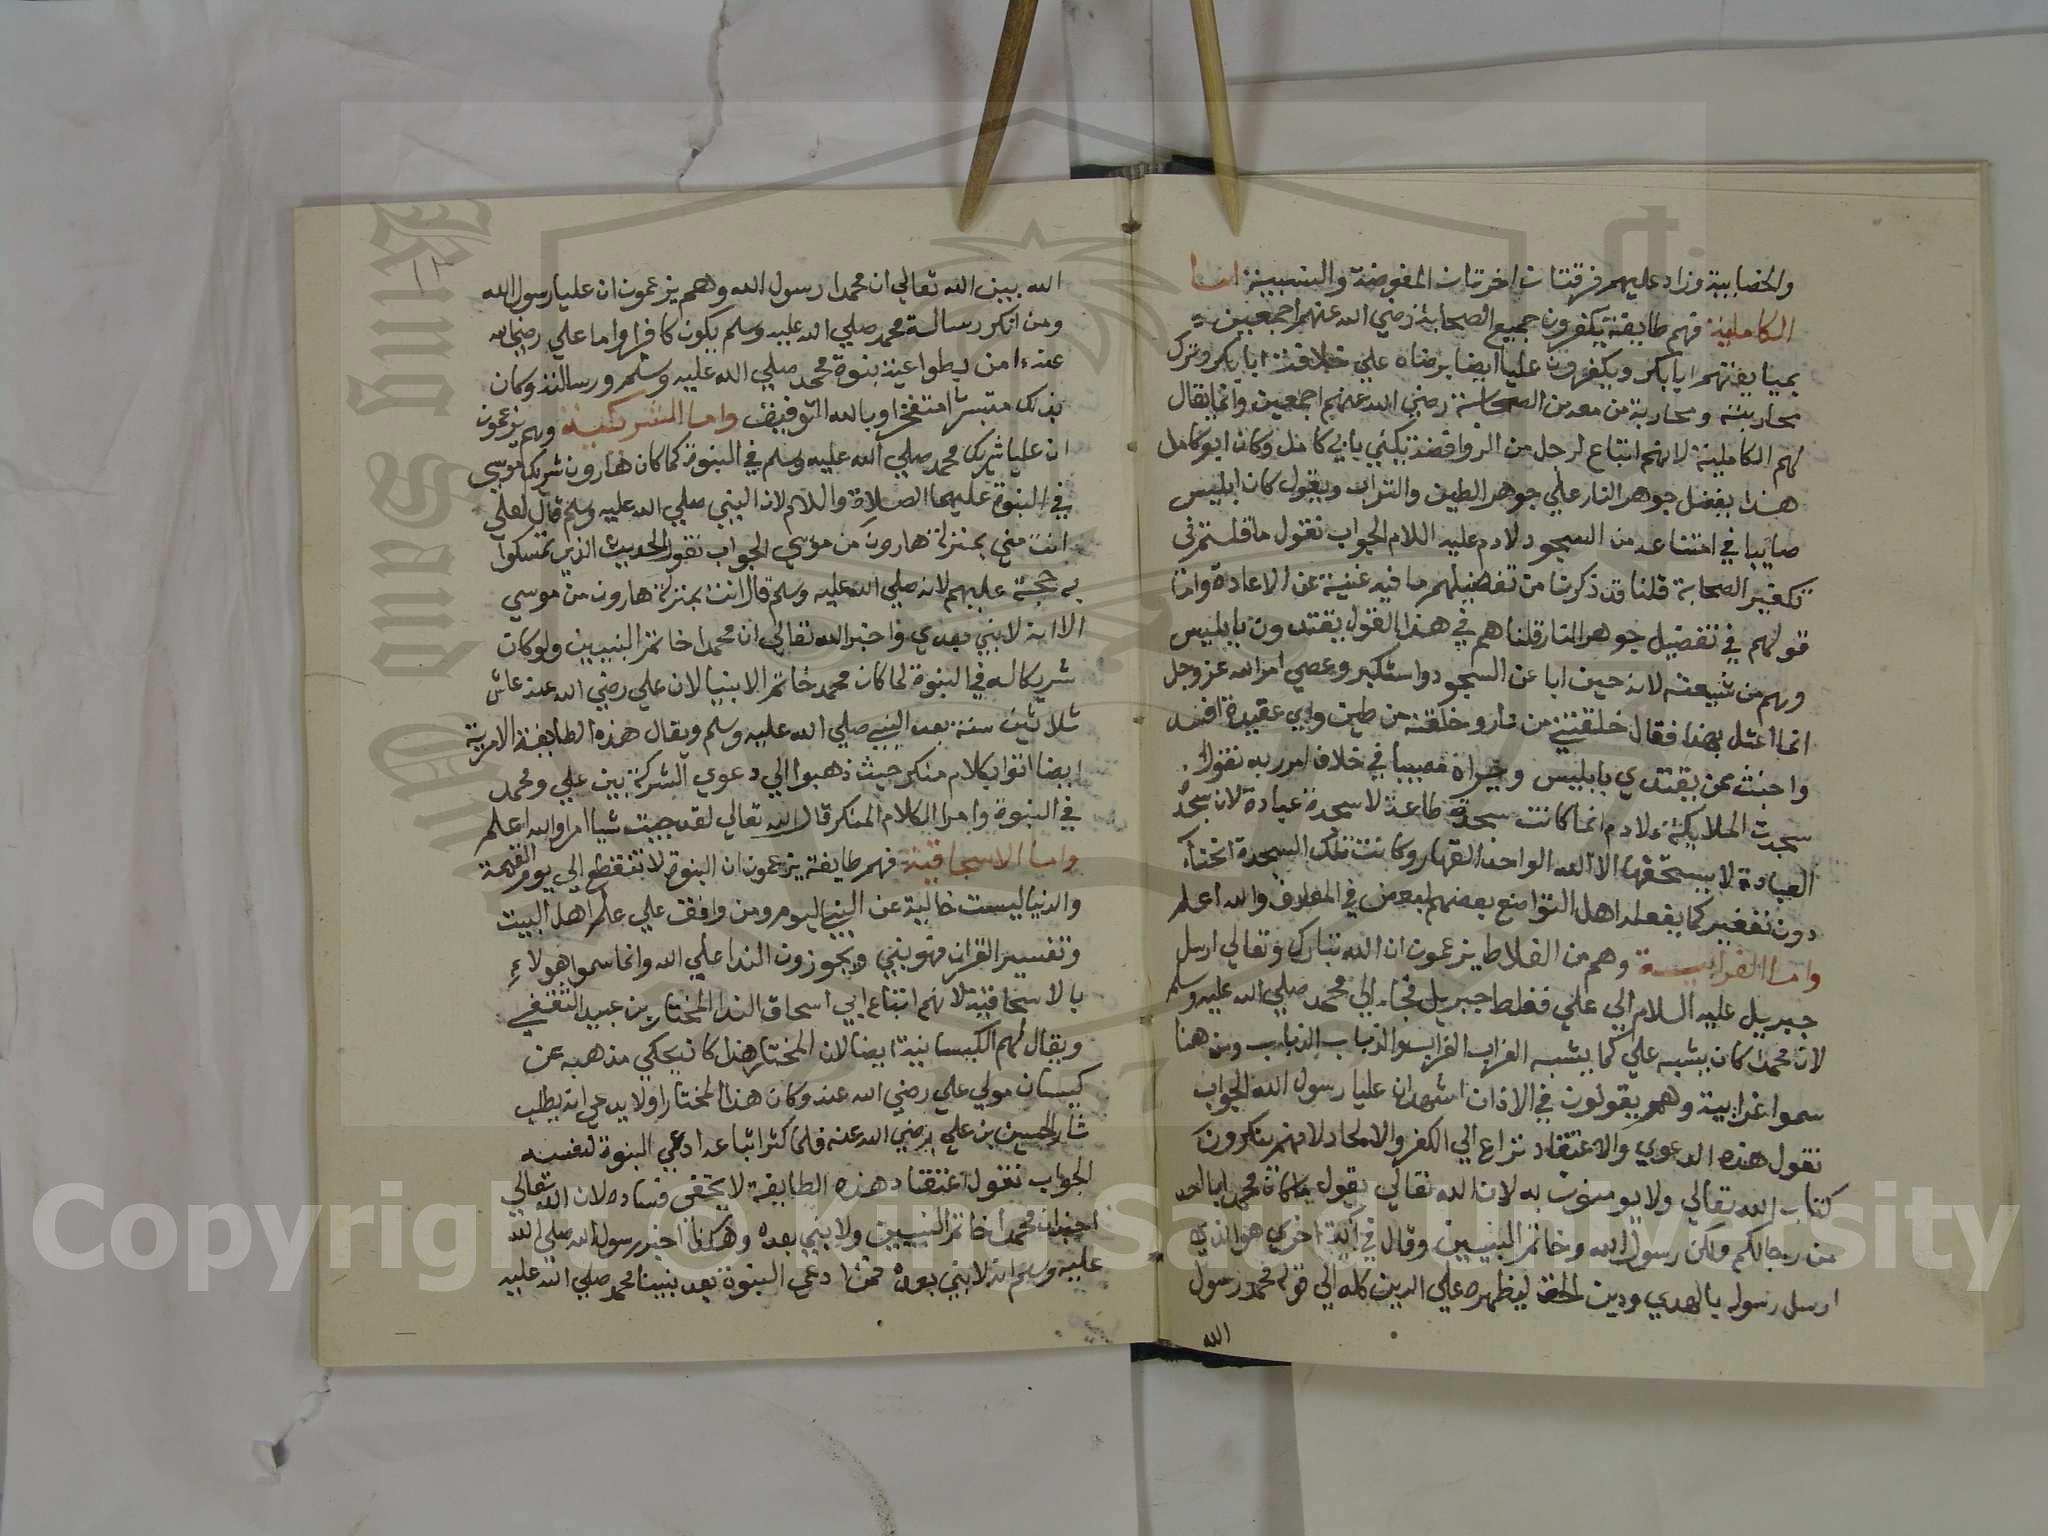 والخصابية وزاد عليهم فرقتان اخرتان المفوضة والسبيبة اما
الكاملية فهم طايفة يكفرون جميع الصحابة رضي الله عنهم اجمعين
بمبايعتهم ابابكر ويكفرون عليا ايضا برضاه علي خلافة ابابكر وترك
محاربته ومحاربة من معه من الصحابة رضي الله عنهم اجمعين وانما يقال
لهم الكاملية لانهم اتباع لرجل من الروافضة يكني بابي كامل وكان ابو كامل
هذا يفضل جوهر النار علي جوهر الطين والتراب ويقول كان ابليس
صايبا في امتناعه من السجود لادم عليه السلام الجواب نقول ما قلتم في
تكفير الصحابة قلنا قد ذكرنا من تفضيلهم ما فيه غنية عن الاعادة واما
قولهم في تفضيل جوهر النار قلنا هم في هذا القول يقتدون بابليس
وهم من شيعته لانه حين ابا عن السجود واستكبر وعصي امر الله عز وجل
انما اعتل بهذا فقال خلقتني من نار وخلقته من طين واي عقيدة افسد
واخبث ممن يقتدي بابليس ويراه مصيبا في خلاف امر ربه نقول
سجدت الملايكة لادم انما كانت سجدة طاعة لا سجدة عبادة لان سجدة
العبادة لا يستحقها الا الله الواحد القهار وكانت تلك السجدة انحناء
دون تغفير كما يفعله اهل التواضع بعضهم لبعض في والله اعلم
واما الغرابية وهم من الغلاط يزعمون ان الله تبارك وتعالي ارسل
جبريل عليه السلام الي علي فغلط جبريل فجاء الي محمد صلي الله عليه وسلم
لان محمدا كان يشبه علي كما يشبه الغراب الغراب والذباب الذباب ومن هنا
سموا غرابية وهم يقولون في الاذان اشهد ان عليا رسول الله الجواب
نقول هذه الدعوي والاعتقاد نزاع الي الكفر والالحاد لانهم ينكرون
كتاب الله تعالي ولا يومنون به لان الله تعالي يقول ما كان محمد ابا احد
من رجالكم ولكن رسول الله وخاتم النبيين وقال في آية اخري هو الذي
ارسل رسوله بالهدي ودين الحق ليظهره علي الدين كله الي قوله محمد رسول
الله
١٢
الله بين الله تعالي ان محمدا رسول الله وهم يزعمون ان عليا رسول الله
ومن انكر رسالة محمد صلي الله عليه وسلم يكون كافرا واما علي رضي الله
عنه امن بنبوة محمد صلي الله عليه وسلم ورسالته وكان
بذلك مبتشرا مفتخرا وبالله التوفيق واما الشركية وهم يزعمون
ان عليا شريك محمد صلي الله عليه وسلم في النبوة كما كان هارون شريك موسي
في النبوة عليهما الصلاة والسلام لان النبي صلي الله عليه وسلم قال لعلي
انت مني بمنزلة هارون من موسي الجواب نقول الحديث الذي تمسكوا
به حجة عليهم لانه صلي الله عليه وسلم قال انت بمنزلة هارون من موسي
الا انه لا نبي بعدي فاخبر الله تعالي ان محمدا خاتم النبيين ولو كان
شريكا له في النبوة لما كان محمد خاتم الانبيا لان علي رضي الله عنه عاش
ثلاثين سنة بعد النبي صلي الله عليه وسلم ويقال هذه الطايفة الامرية
ايضا اتوا بكلام منكر حيث ذهبوا الي دعوي الشركة بين علي ومحمد
في النبوة وامرا الكلام المنكر قال الله تعالي لقد جيت شيا امرا والله اعلم
واما الاسحاقية فهم طايفة يزعمون ان النبوة لا تنقطع الي يوم القيمة
والدنيا ليست خالية عن النبي اليوم ومن وافق علي علم اهل البيت
وتفسير القران فهو نبي ويجوزون الندا علي الله وانما سموا هولاء
بالاسحاقية لانهم اتباع ابي اسحاق الندا المختار بن عبيد الثقفي
ويقال لهم الكيسانية ايضا لان المختار هذا كان يحكي مذهبه عن
كيسان مولي علي رضي الله عنه وكان هذا المختار اولا يدعي انه يطلب
ثار الحسين بن علي رضي الله عنه فلما كثر اتباعه ادعي النبوة لنفسه
الجواب نقول اعتقاد هذه الطايفة لا يخفي فساده لان الله تعالي
اخبر ان محمدا خاتم النبيين ولا نبي بعده وهكذا اخبر رسول الله صلي الله
عليه وسلم انه لا نبي بعده فمن ادعي النبوة بعد نبينا محمد صلي الله عليه
Copyright © King Saud University